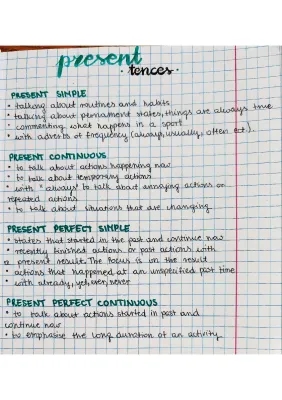 present
• tences •
PRESENT SIMPLE
• talking about routines and habits
• talking about permament states, things are always true
• commenting what happens in a sport
• with adverbs of frequency (always, usually, often ect.)
PRESENT CONTINUOUS
• to talk about actions happening now
• to talk about temporary actions
• with "always" to talk about annoying actions or
repeated actions
• to talk about situations that are changing
PRESENT PERFECT SIMPLE
• states that started in the past and continue now
• recently finished actions or past actions with
a present result. The focus is on the result
• actions that happened at an unspecified past time
• with already, yet, ever, never
PRESENT PERFECT CONTINUOUS
• to talk about actions started in past and
continue now
• to emphasise the long duration of an activity